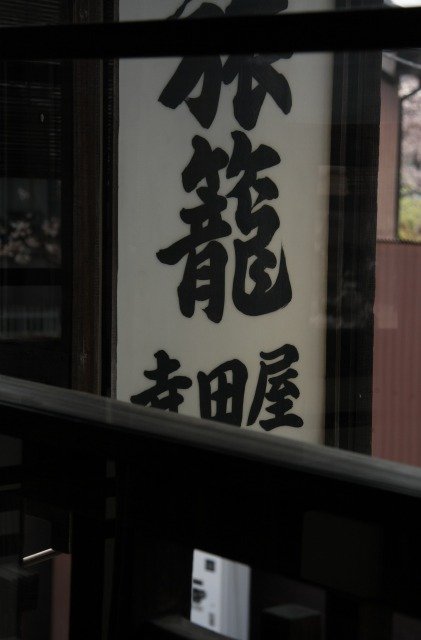 旅
籠
寺田屋